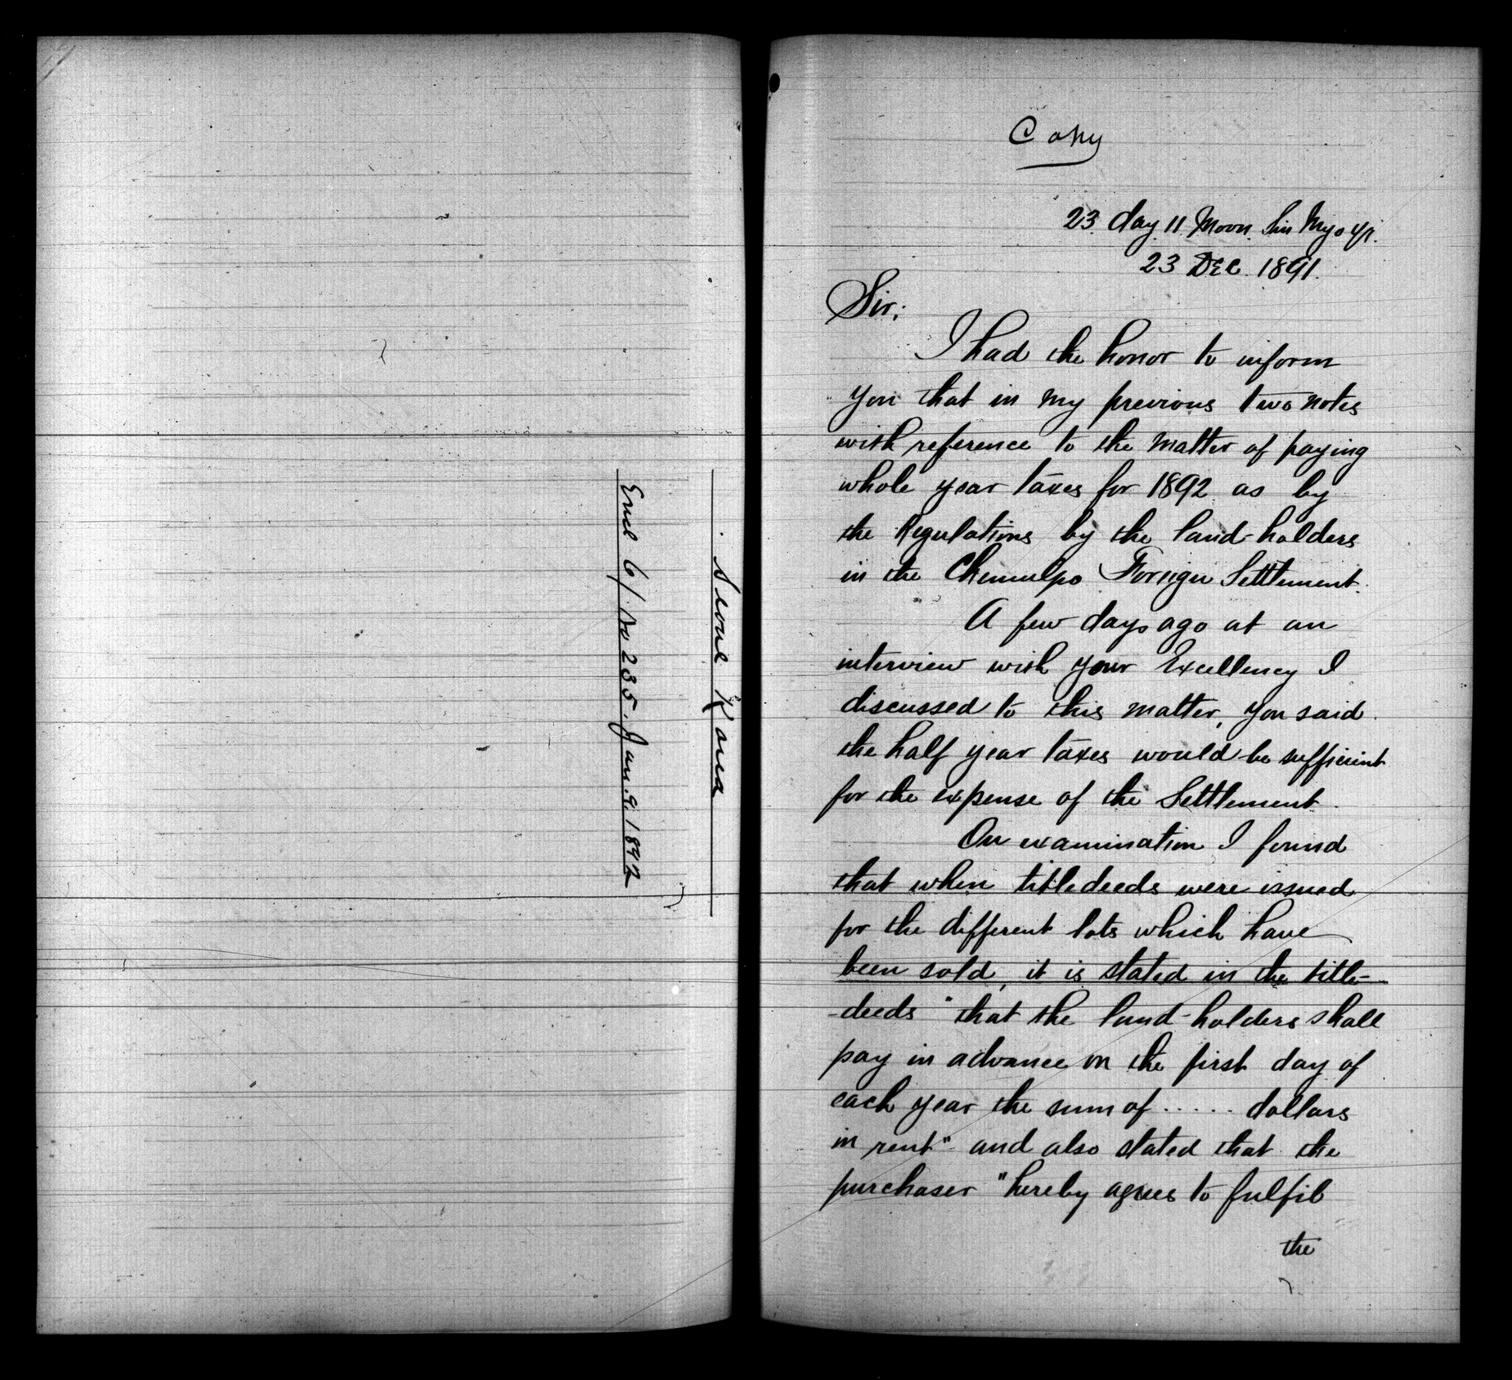 Seoul Korea
Encl 6/ No 235. Jan. 9. 1892
Copy
23 day 11 Moon Sin Myo yr.
23 Dec. 1891.
Sir;
I had the honor to inform
you that in my previous two notes
with reference to the matter of paying
whole year taxes for 1892 as by
the Regulations by the land-holders
in the Chemulpo Foreign Settlement.
A few days ago at an
interview with your Excellency I
discussed to this matter, you said
the half year taxes would be sufficient
for the expense of the Settlement.
On examination I found
that when titledeeds were issued
for the different lots which have
been sold, it is stated in the title-
-deeds "that the land-holders shall
pay in advance on the first day of
each year the sum of ..... dollars
in rent" and also stated that the
purchaser "hereby agrees to fulfil
the